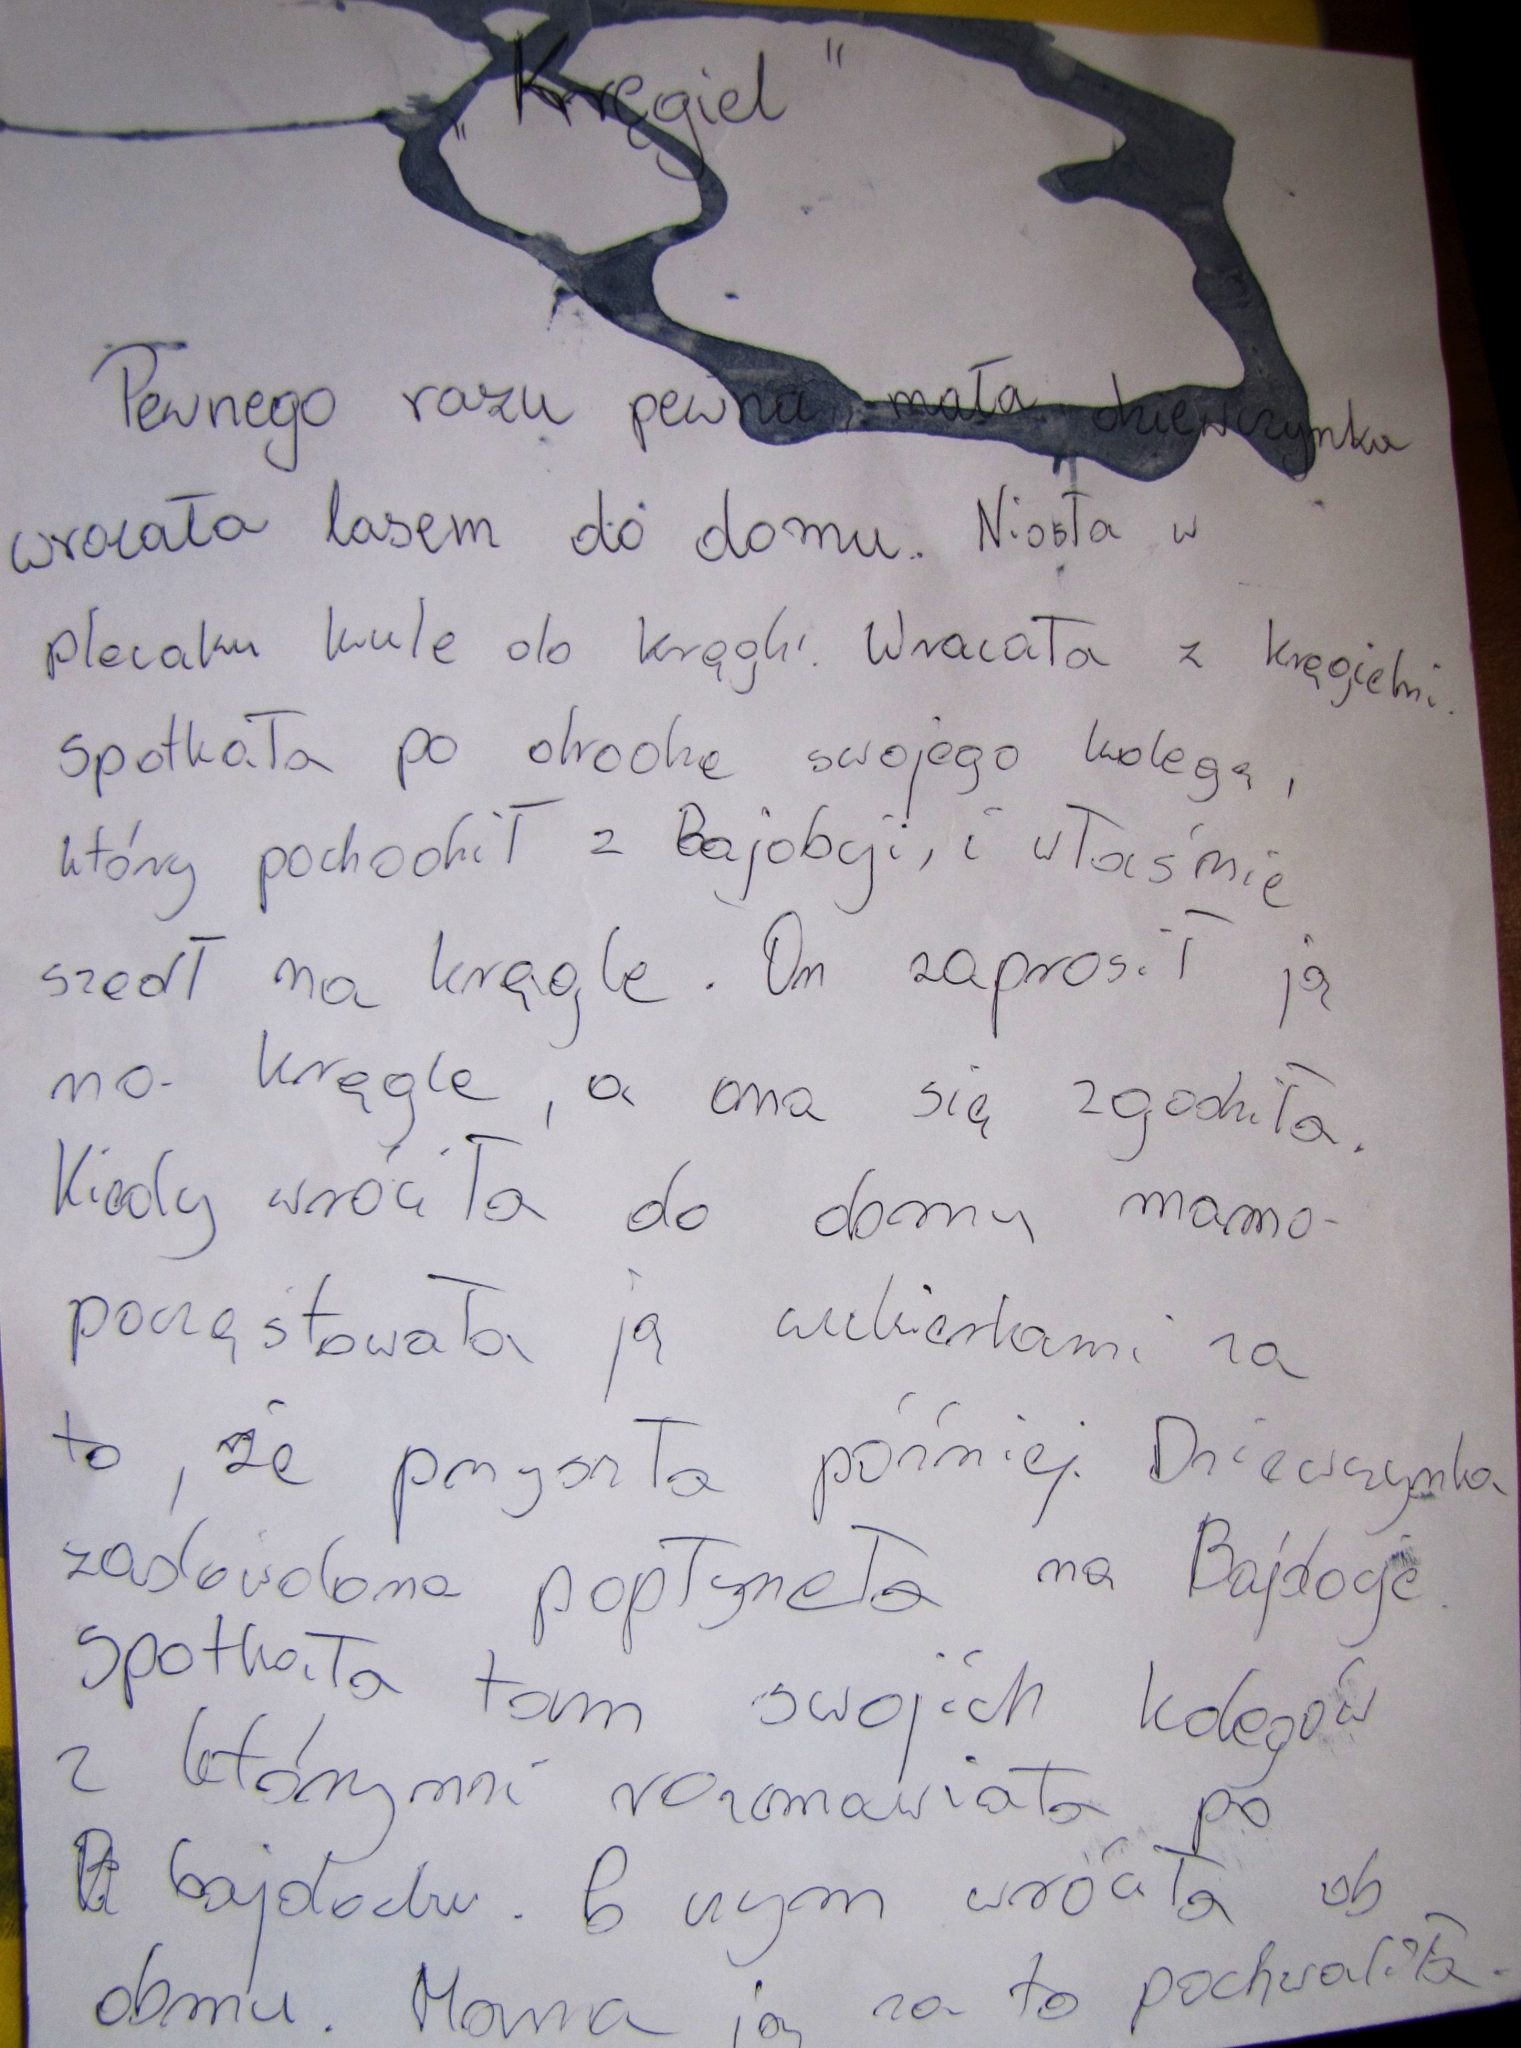 „Kręgiel"
Pewnego razu pewna, mała dziewczynka
wracała lasem do domu. Niosła w
plecaku kule do kręgli. Wracała z kręgielni.
Spotkała po drodze swojego kolegę,
który pochodził z Bajdocji, i właśnie
szedł na kręgle. On zaprosił ją
na kręgle, a ona się zgodziła.
Kiedy wróciła do domu mama
poczęstowała ją cukierkami za
to, że przyszła później. Dziewczynka
zadowolona popłyneła na Bajdocję.
Spotkała tam swojich kolegów
z którymi rozmawiała po
bajdocku. Po czym wróciła do
domu. Mama ją za to pochwaliła.